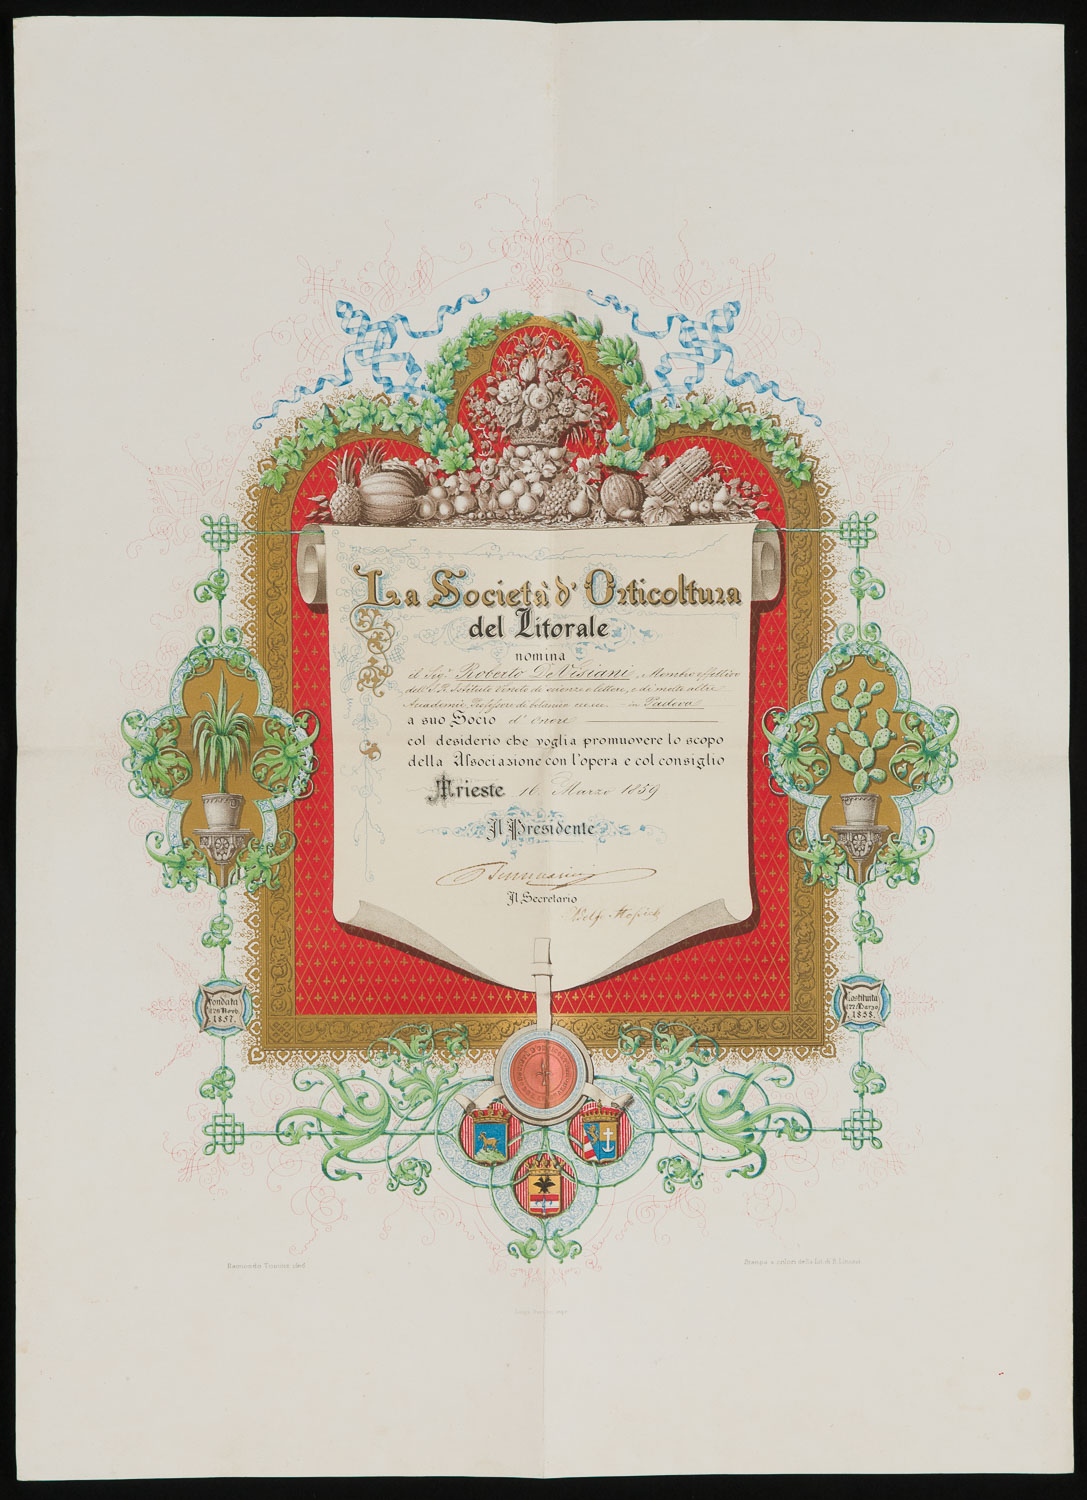 La Società d'Orticoltura
del Litorale
nomina
il Sig.r Roberto De Visiani, Membro effettivo
dell' I. R. Istituto Veneto di scienze e lettere, e di molte altre
Accademie, Professore di botanica ec. ec. - in Padova
a suo Socio d'onore
col desiderio che voglia promuovere lo scopo
della Associazione con l'opera e col consiglio
Trieste 16. Marzo 1859
Il Presidente
Il Secretario
Fondata
Novb.
1857.
Costituita
Marzo
1858.
Raimondo
Stampa a colori della Lit. di B. Linassi